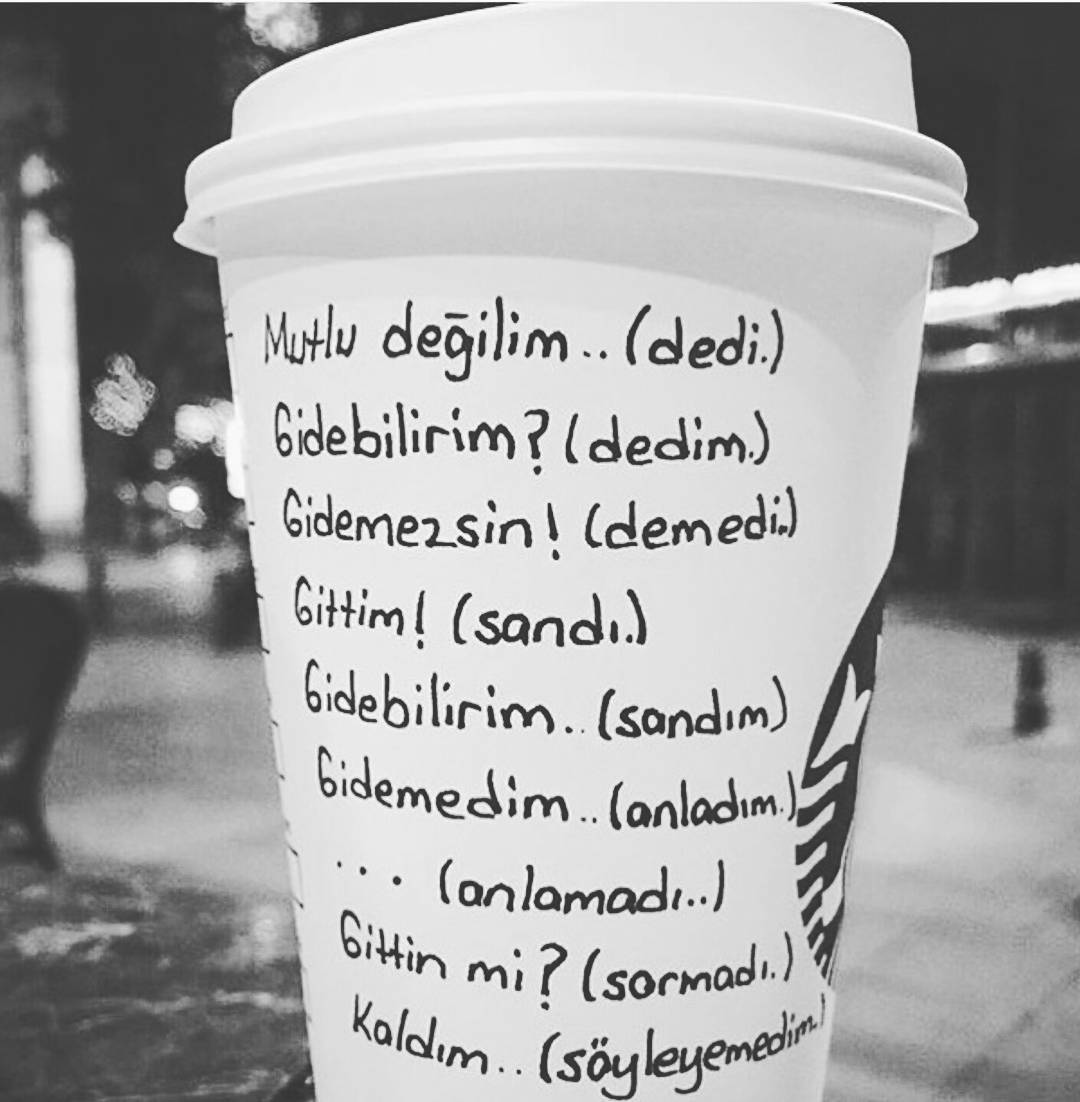 Mutlu değilim.. (dedi.)
Gidebilirim? (dedim.)
Gidemezsin! (demedi..)
Gittim! (sandı.)
Gidebilirim.. (sandım)
Gidemedim.. (anladım.)
... (anlamadı..)
Gittin mi? (sormadı.)
Kaldım.. (söyleyemedim.)